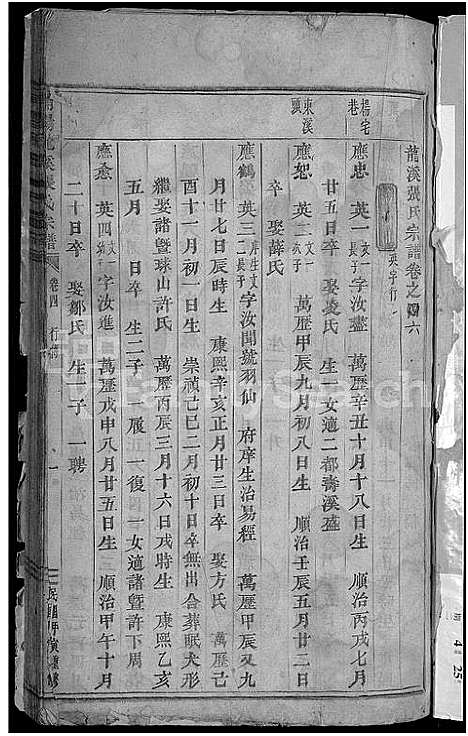 龍溪張氏宗譜卷之四六
英字行
楊宅巷
應忠 英一 文一長子 字汝盡 萬歷辛丑十月十八日生 順治丙戌七月
廿五日卒 娶凌氏 生一女適二都壽溪盛
東溪頭
應恕 英二 文一次子 萬歷甲辰九月初八日生 順治壬辰五月廿二日
卒 娶薛氏
應鶴 英三 庠生文二長子 字汝聞號羽仙 府庠生治易經 萬歷甲辰又九
月廿七日辰時生 康熙辛亥正月廿三日卒 娶方氏 萬歷己
酉十一月初一日生 崇禎己巳二月初十日卒無出合葬眠犬形
繼娶諸暨球山許氏 萬歷丙辰三月十六日戌時生 康熙乙亥
五月 日卒 生二子 一履 一復 一女適諸暨許下周
應愈 英四 字汝進 萬歷戊申八月廿五日生 順治甲午十月
二十日卒 娶鄒氏 生一子 一聘
陽龍溪張氏宗譜 卷四 行傳 一
4
25